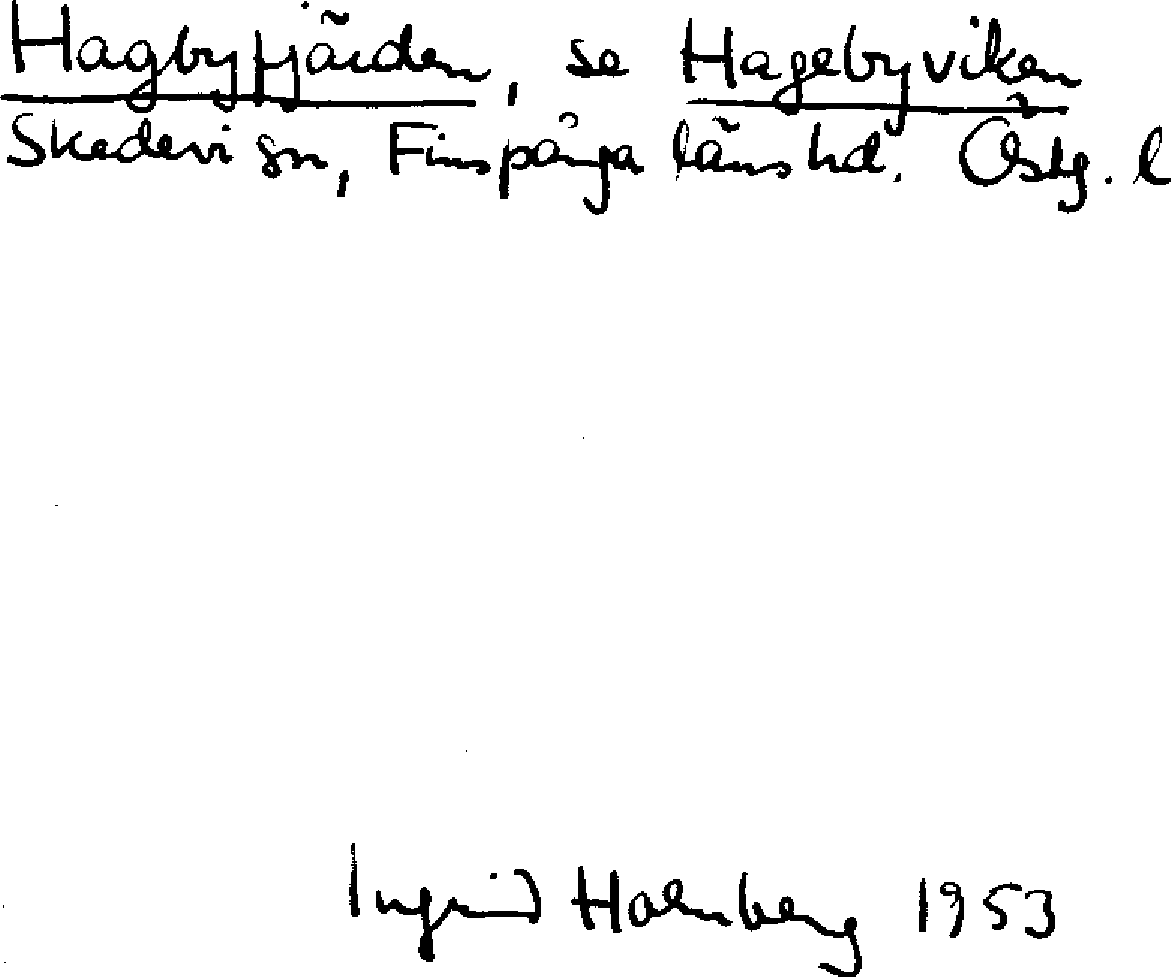 Hagbyfjärden, se Hagebyviken
Skedevi sn, Finspånga läns hd. Östg. l
Ingrid Holmberg 1953